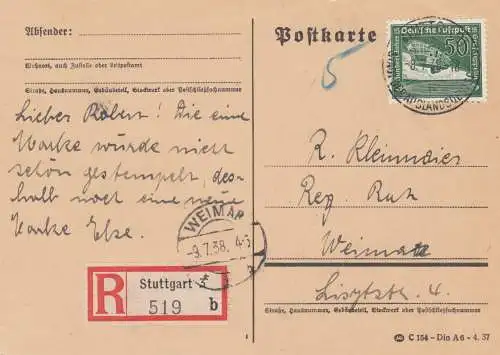 Absender:
Wohnort, auch Zustell- oder Leitpostamt
Straße, Hausnummer, Gebäudeteil, Stockwerk oder Postschließfachnummer
Lieber Robert! Die eine
Marke wurde nicht
schön gestempelt, des-
halb noch eine neue
Marke Else.
WEIMAR
-9.7.38. 4-5
R
Stuttgart 3
519 b
Postkarte
5
Deutsche Luftpost
50
AUSLANDSAUS
R. Kleinmaier
Reg. Rat
Weimar
Lisztstr. 4.
Straße, Hausnummer, Gebäudeteil, Stockwerk oder Postschließfachnummer
C 154 - Din A6 - 4. 37